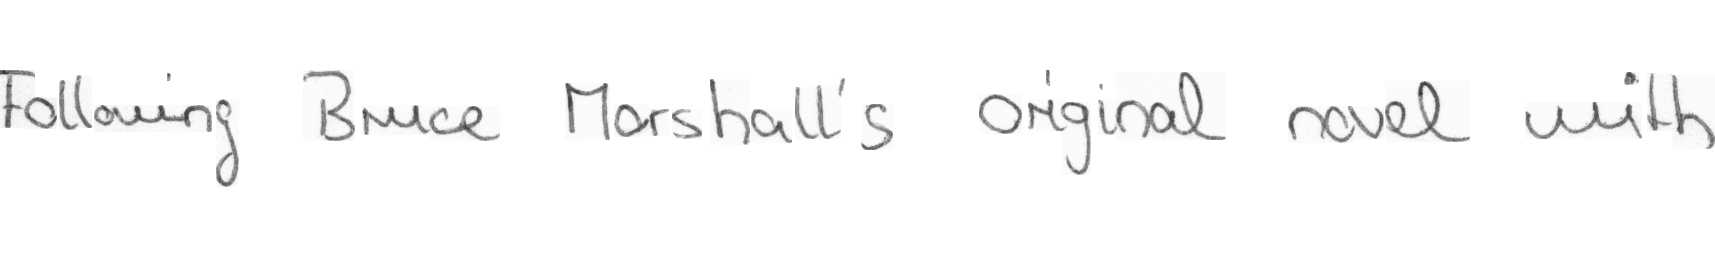 Following Bruce Marshall's original novel with